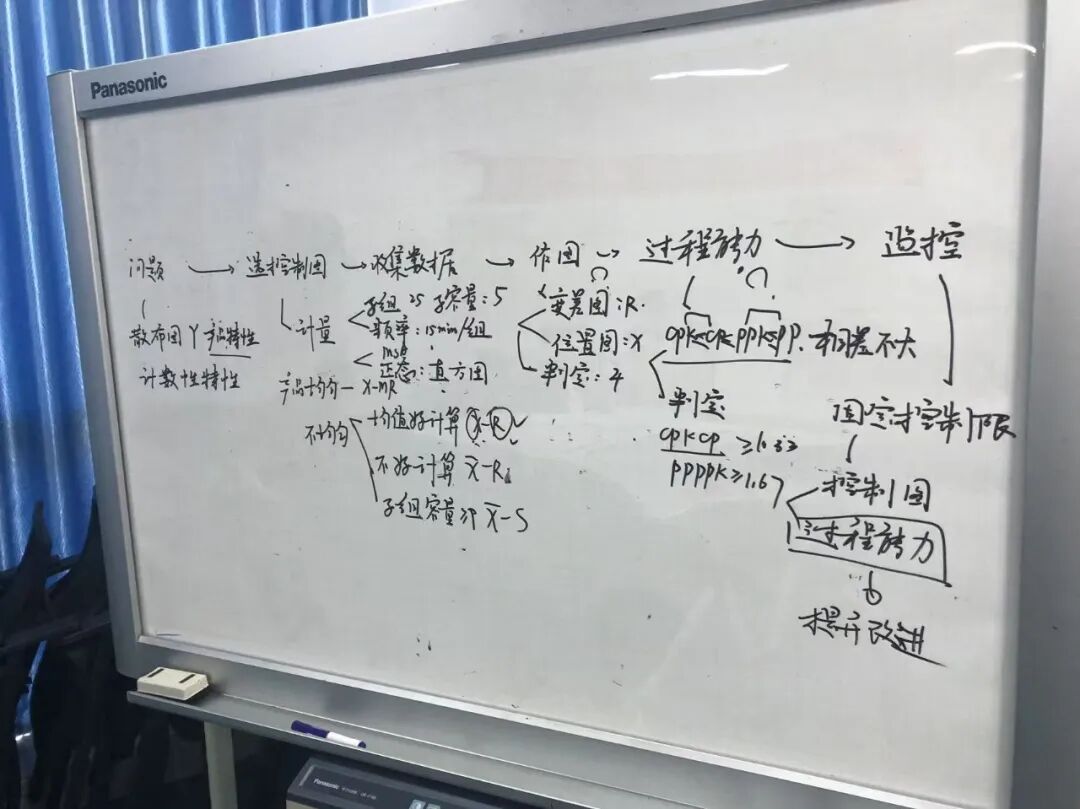 Panasonic
问题 → 选控制图 → 收集数据 → 作图 → 过程能力 → 监控
散布图 Y 产品特性
计数性特性
计量
子组 25 子容量:5
频率:15min/组
msa
正态:直方图
产品均匀 — X-MR
不均匀
均值好计算 X-R
不好计算 X-R
子组容量≥9 X-S
变差图:R
位置图:X
判定:4
CPK≤CP PPK≤PP. 相差不大
判定
CPK CP ≥1.33
PP PPK ≥1.67
固定控制限
控制图
过程能力
提升改进
Panasonic